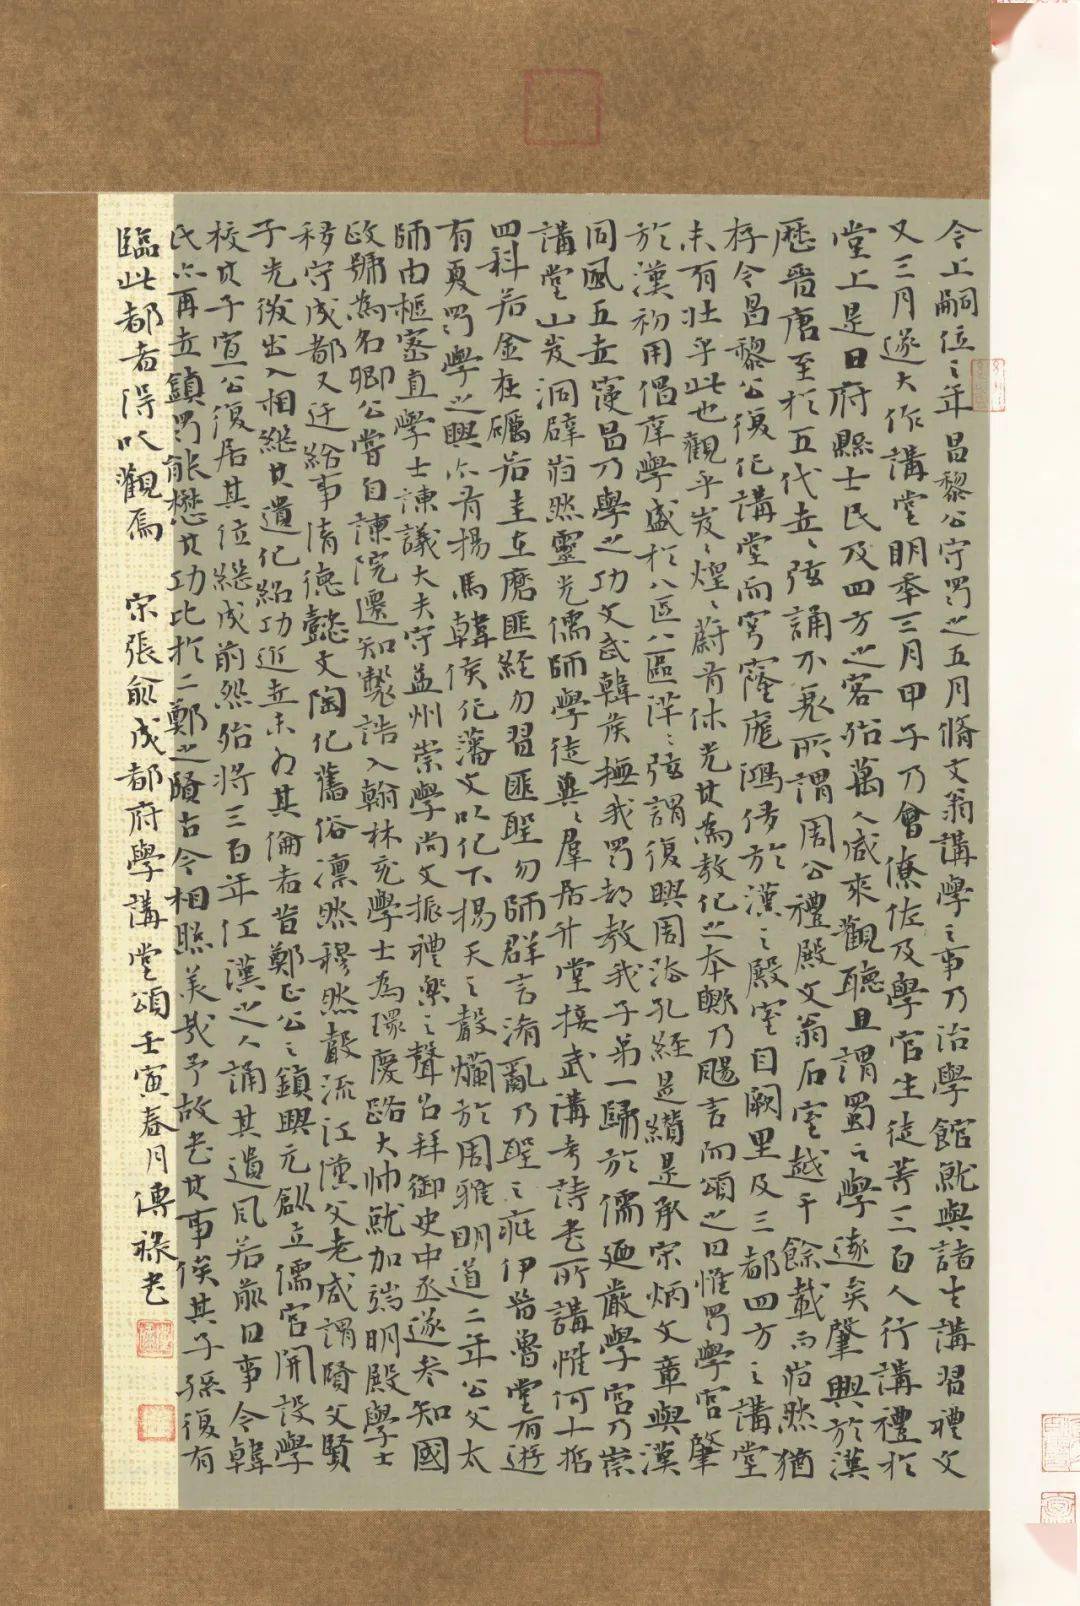 今上嗣位之年昌黎公守蜀之五月脩文翁講學之事乃治學館就與諸生講習禮文
又三月遂大作講堂明年三月甲子乃會僚佐及學官生徒等三百人行講禮於
堂上是日府縣士民及四方之客殆萬人咸來觀聽且謂蜀之學遠矣肇興於漢
歷晉唐至於五代世世弦誦不衰所謂周公禮殿文翁石室越千餘載而尚然猶
存今昌黎公復作講堂而穹窿龐鴻侈於漢之殿室自闕里及三都四方之講堂
未有壯乎此也觀乎炭炭煌煌蔚有休光其為教化之本歟乃颺言而頌之曰惟蜀學官肇
於漢初用倡庠學盛於八區八區洋洋弦謂復興周法孔經是纘是承宋炳文章與漢
同風五世寖昌乃學之功文武韓侯撫我蜀都教我子弟一歸於儒廼嚴學宮乃崇
講堂山岌洞辟尚然靈光儒師學徒輿輿羣居升堂接武講考詩書所講惟何十哲
四科若金在礪若圭在磨匪經勿習匪聖勿師群言淆亂乃聖之疵伊昔魯堂有遊
有夏蜀學之興亦有揚馬韓侯作藩文以化下揚天之聲爛於周雅明道二年公父太
師由樞密直學士諫議大夫守益州崇學尚文振禮樂之聲名拜御史中丞遂參知國
政號為名卿公嘗自諫院遷知製誥入翰林充學士為環慶路大帥就加端明殿學士
移守成都又迁給事清德懿文陶化舊俗凜然穆然聲流江漢父老咸謂賢父賢
子光微出入相繼其遺化紹功近世未有其倫者昔鄭正公之鎮興元創立儒宮開設學
校其子宣公復居其位繼成前烈殆將三百年江漢之人誦其遺風若前日事今韓
氏亦再世鎮蜀能懋其功比於二鄭之賢古今相照美哉予故書其事俟其子孫復有
臨此都者得以觀焉 宋張俞成都府學講堂頌壬寅春月傳祿書